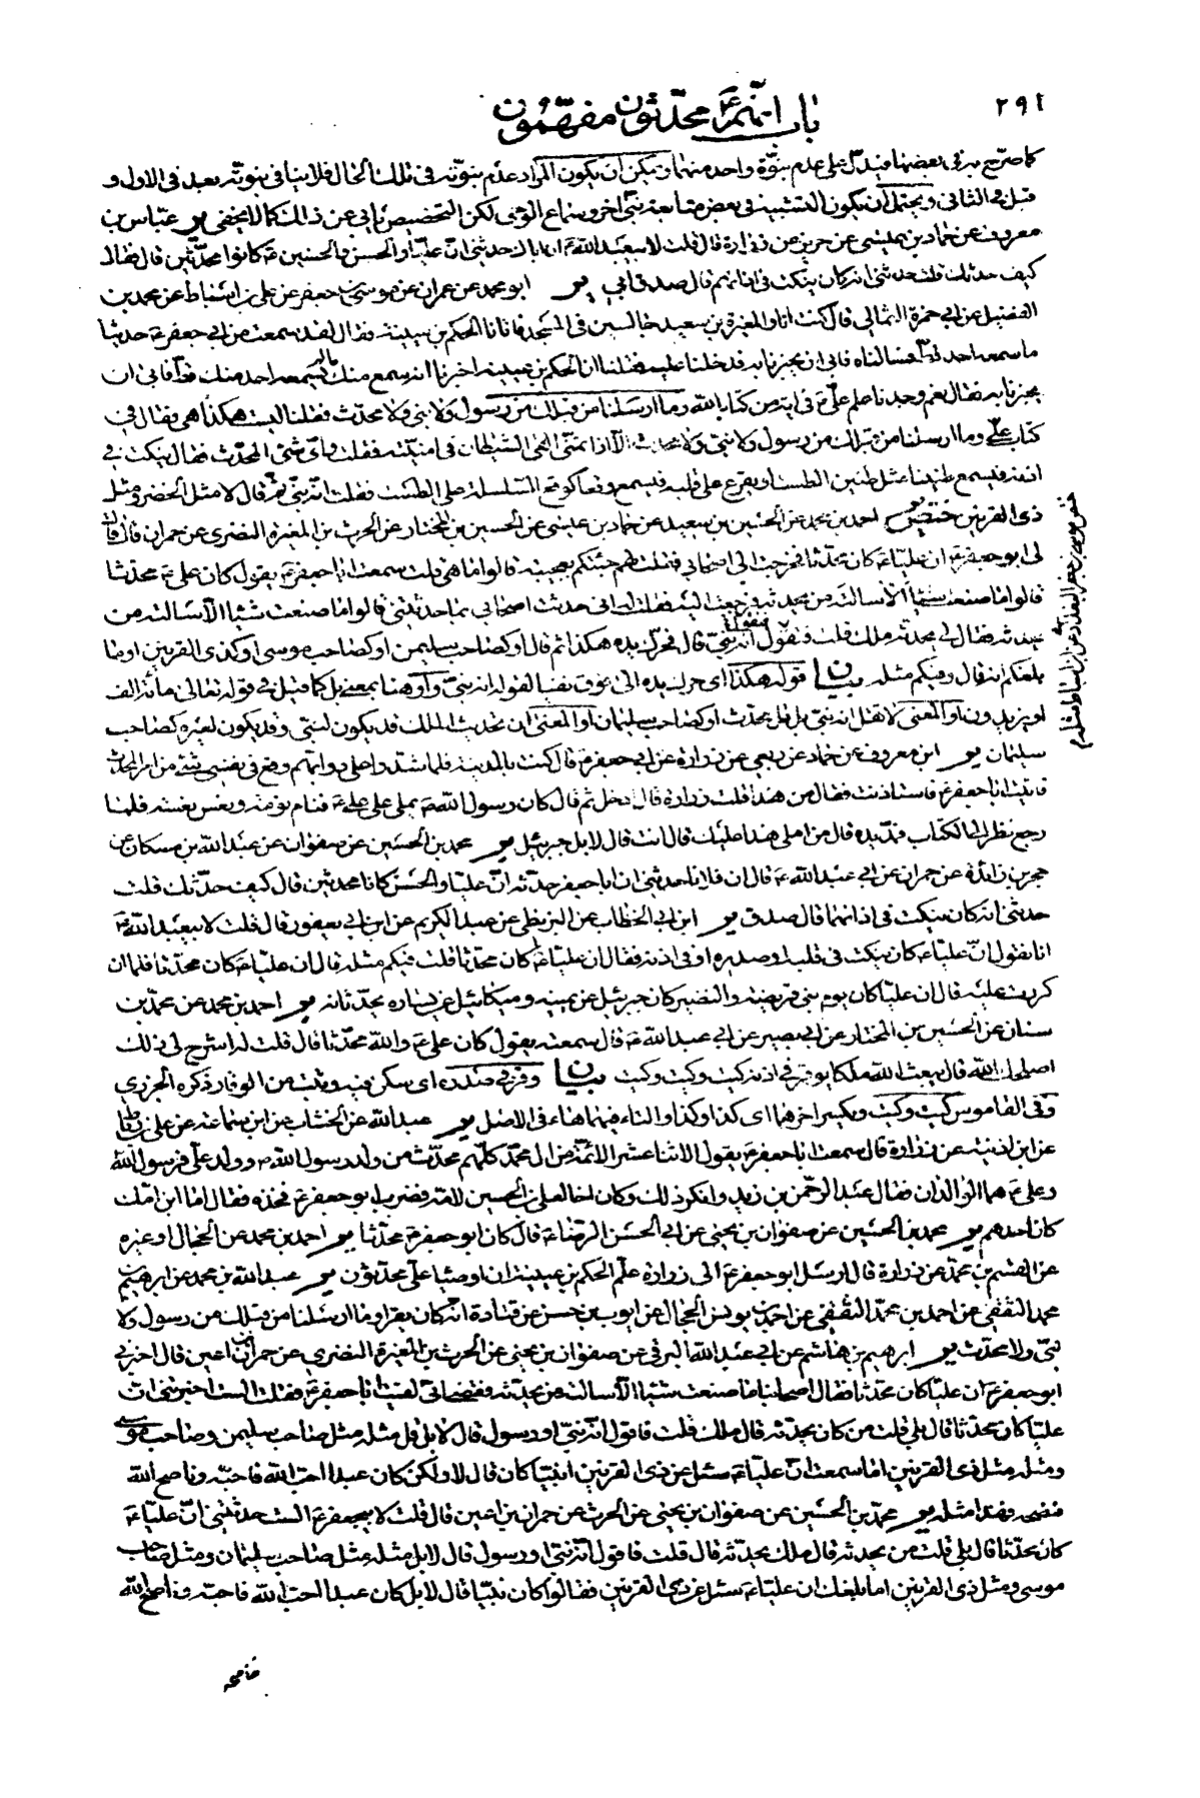 ٢٩١
باب انهم ع محدثون مفهمون
كما صرح به في بعضها فيدل على عدم نبوة واحد منهما ويمكن ان يكون المراد عدم نبوته في تلك الحال فلا ينافي نبوته بعد في الاول و
قبل في الثاني ويحتمل ان يكون التشبيه في بعض متابعة نبي اخر وسماع الوحي لكن التخصيص يابى عن ذلك كما لا يخفى ير عباس بن
معروف عن حماد بن عيسى عن حريز عن زرارة قال قلت لابيعبد الله ع اباك حدثني ان عليا والحسن والحسين ع كانوا محدثين قال فقال
كيف حدثك قلت حدثني انه كان ينكت في اذانهم قال صدق ابي ير ابو محمد عن عمران عن موسى بن جعفر عن علي بن اسباط عن محمد بن
الفضيل عن ابي حمزة الثمالي قال كنت انا والمغيرة بن سعيد جالسين في المسجد فاتانا الحكم بن عيينة فقال لقد سمعت من ابي جعفر ع حديثا
ما سمعه احد قط فسالناه فابى ان يخبرنا به فدخلنا عليه فقلنا ان الحكم بن عيينة اخبرنا انه سمع منك ما لم يسمعه احد منك قط فابى ان
يخبرنا به فقال نعم وجدنا علم علي ع في اية من كتاب الله وما ارسلنا من قبلك من رسول ولا نبي ولا محدث فقلنا ليست هكذا هي فقال في
كتاب علي وما ارسلنا من قبلك من رسول ولا نبي ولا محدث الا اذا تمنى القى الشيطان في امنيته فقلت واي شئ المحدث فقال ينكت في
اذنه فيسمع طنينا كطنين الطست او يقرع على قلبه فيسمع وقعا كوقع السلسلة على الطست فقلت انه نبي ثم قال لا مثل الخضر ومثل
ذي القرنين ختص ير احمد بن محمد عن الحسين بن سعيد عن حماد بن عيسى عن الحسين بن المختار عن الحرث بن المغيرة النضري عن حمران قال قال
لي ابو جعفر ع ان عليا ع كان محدثا فخرجت الى اصحابي فقلت لهم جئتكم بعجيبة قالوا ما هي قلت سمعت ابا جعفر ع يقول كان علي ع محدثا
قالوا ما صنعت شيئا الا سالته من يحدثه فرجعت اليه فقلت له اني حدثت اصحابي بما حدثتني قالوا ما صنعت شيئا الا سالته من
يحدثه فقال لي يحدثه ملك قلت فنقول انه نبي قال فحرك يده هكذا ثم قال او كصاحب سليمن او كصاحب موسى او كذي القرنين او ما
بلغكم انه قال وفيكم مثله بيان قوله هكذا اي حرك يده الى فوق نفيا لقوله انه نبي واو هنا بمعنى بل كما قيل في قوله تعالى مائة الف
او يزيدون او المعنى لا تقل انه نبي بل قل محدث او كصاحب سليمان او المعنى ان تحديث الملك قد يكون لنبي وقد يكون لغيره كصاحب
سليمان ير ابن معروف عن حماد عن ربعي عن زرارة عن ابي جعفر ع قال كنت بالمدينة فلما شدوا على دوابهم وقع في نفسي شئ من امر المحدث
فاتيت ابا جعفر ع فاستاذنت فقال من هذا قلت زرارة قال ادخل ثم قال كان رسول الله ص يملي على علي ع فنام نومة ونعس نعسة فلما
رجع نظر الى الكتاب فمد يده قال من املى هذا عليك قال انت قال لا بل جبرئيل ير محمد بن الحسين عن صفوان عن عبد الله بن مسكان عن
حجر بن زائدة عن حمران عن ابي عبد الله ع قال ان فلانا حدثني ان ابا جعفر حدثه ان عليا والحسن كانا محدثين قال كيف حدثك قلت
حدثني انه كان ينكت في اذانهما قال صدق ير ابن ابي الخطاب عن البزنطي عن عبد الكريم عن ابن ابي يعفور قال قلت لابيعبد الله ع
انا نقول ان عليا ع كان ينكت في قلبه او صدره او في اذنه فقال ان عليا ع كان محدثا قلت فيكم مثله قال ان عليا ع كان محدثا فلما ان
كررت عليه قال ان عليا كان يوم بني قريضة والنضير كان جبرئيل عن يمينه وميكائيل عن يساره يحدثانه ير احمد بن محمد عن محمد بن
سنان عن الحسين بن المختار عن ابي بصير عن ابي عبد الله ع قال سمعته يقول كان علي ع والله محدثا قال قلت له اشرح لي ذلك
اصلحك الله قال يبعث الله ملكا يوقر في اذنه كيت وكيت وكيت بيان وقر في صدره اي سكن فيه وثبت من الوقار ذكره الجزري
وفي القاموس كيت وكيت ويكسر اخرهما اي كذا وكذا والتاء فيهما هاء في الاصل ير عبد الله عن الخشاب عن ابن سماعة عن علي بن رباط
عن ابن اذينة عن زرارة قال سمعت ابا جعفر ع يقول الاثنا عشر الائمة من ال محمد كلهم محدث من ولد رسول الله ص وولد علي فرسول الله
وعلي ع هما الوالدان فقال عبد الرحمن بن زيد وانكر ذلك وكان اخا لعلي بن الحسين لامه فضرب ابو جعفر ع فخذه فقال اما ابن امك
كان احدهم ير محمد بن الحسين عن صفوان بن يحيى عن ابي الحسن الرضا ع قال كان ابو جعفر ع محدثا ير احمد بن محمد عن الحجال او غيره
عن القسم بن محمد عن زرارة قال ارسل ابو جعفر ع الى زرارة علم الحكم بن عيينة ان اوصيا علي محدثون ير عبد الله بن محمد عن ابرهيم بن
محمد الثقفي عن احمد بن محمد الثقفي عن احمد بن يونس الحجال عن ايوب بن حسن عن قتادة انه كان يقرا وما ارسلنا من قبلك من رسول ولا
نبي ولا محدث ير ابرهيم بن هاشم عن ابي عبد الله البرقي عن صفوان بن يحيى عن الحرث بن المغيرة النضري عن حمران بن اعين قال اخبرني
ابو جعفر ع ان عليا كان محدثا فقال اصحابنا ما صنعت شيئا الا سالت من يحدثه فقضى اني لقيت ابا جعفر ع فقلت الست اخبرتني ان
عليا كان محدثا قال بلى قلت من كان يحدثه قال ملك قلت فاقول انه نبي او رسول قال لا بل قل مثله مثل صاحب سليمن وصاحب موسى
ومثله مثل ذي القرنين اما سمعت ان عليا ع سئل عن ذي القرنين انبيا كان قال لا ولكن كان عبدا احب الله فاحبه وناصح الله
فنصحه فهذا مثله ير محمد بن الحسين عن صفوان بن يحيى عن الحرث عن حمران بن اعين قال قلت لابيجعفر ع الست حدثتني ان عليا ع
كان محدثا قال بلى قلت من يحدثه قال ملك يحدثه قال قلت فاقول انه نبي او رسول قال لا بل مثله مثل صاحب سليمان ومثل صاحب
موسى ومثل ذي القرنين اما بلغك ان عليا ع سئل عن ذي القرنين فقالوا كان نبيا قال لا بل كان عبدا احب الله فاحبه وناصح الله
فناصحه